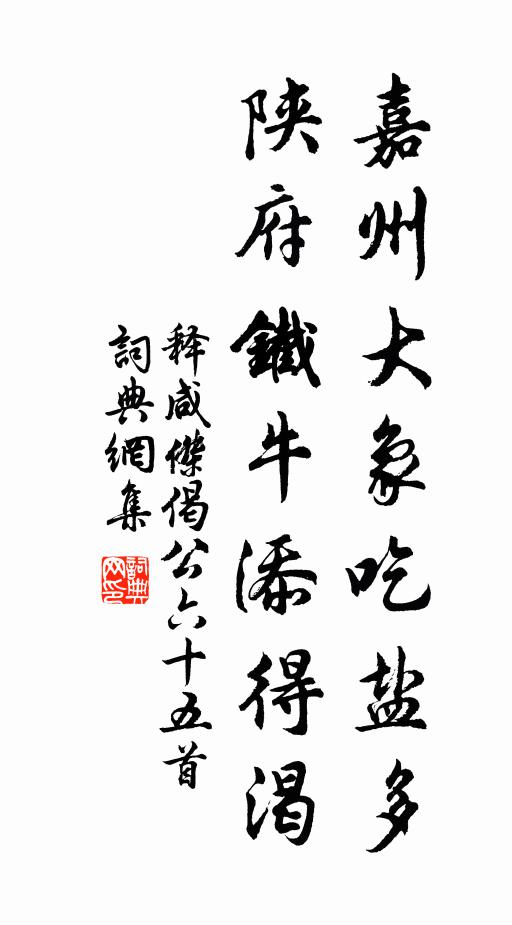 嘉州大象吃盐多
陕府鐵牛添得渴
释咸傑偈公六十五首
詞典網集
詞典网印